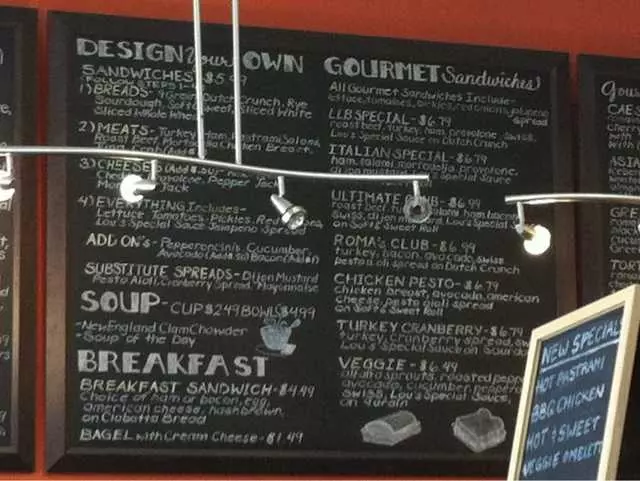 DESIGN Your OWN
SANDWICHES $5.99
(FOLLOW STEPS 1-4)
1) BREADS- 9 Grain, Dutch Crunch, Rye
Sourdough, Soft Sweet, Sliced White
Sliced Whole Wheat
2) MEATS- Turkey, Ham, Pastrami, Salami,
Roast Beef, Mortadella, Chicken Breast,
3) CHEESES
Provolone, Pepper Jack
Jack
4) EVERYTHING Includes-
Lettuce, Tomatoes, Pickles, Red
Lou's Special Sauce, Jalapeño Spread
ADD ON's- Pepperoncinis, Cucumber,
Avocado Bacon
SUBSTITUTE SPREADS- Dijon Mustard
Pesto Aioli, Cranberry Spread, Mayonnaise
SOUP- CUP $2.49 BOWL $4.99
-New England Clam Chowder
-"Soup" of the Day
BREAKFAST
BREAKFAST SANDWICH-$4.49
Choice of ham or bacon, egg,
american cheese, hashbrown,
on Ciabatta Bread
BAGEL with Cream Cheese-$1.49
GOURMET Sandwiches
All Gourmet Sandwiches Include-
lettuce, tomatoes, pickles, red onions, jalapeno
spread
LLB SPECIAL-$6.79
roast beef, turkey, ham, provolone, swiss,
Lou's Special Sauce on Dutch Crunch
ITALIAN SPECIAL-$6.79
ham, salami, mortadella, provolone,
dijon mustard Lou's Special Sauce
ULTIMATE CLUB-$6.99
roast beef, turkey, salami, ham, bacon
swiss, dijon mustard, Lou's Special
on Soft & Sweet Roll
ROMA'S CLUB-$6.99
turkey, bacon, avocado, swiss
pesto aioli spread on Dutch Crunch
CHICKEN PESTO-$6.79
Chicken Breast, avocado, american
cheese, pesto aioli spread
on Soft & Sweet Roll
TURKEY CRANBERRY-$6.79
turkey, cranberry spread, swiss
Lou's Special Sauce on Sourdough
VEGGIE-$6.49
alfalfa sprouts, roasted
avocado, cucumber,
swiss, Lou's Special Sauce,
on 9 grain
NEW SPECIAL
HOT PASTRAMI
BBQ CHICKEN
HOT & SWEET
VEGGIE OMELET